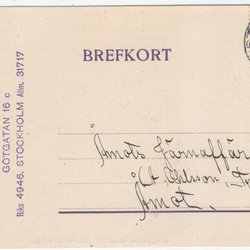 BREFKORT
GÖTGATAN 16 c
Riks 4946. STOCKHOLM Allm. 31717
Åmots Järnaffär
Åmot.